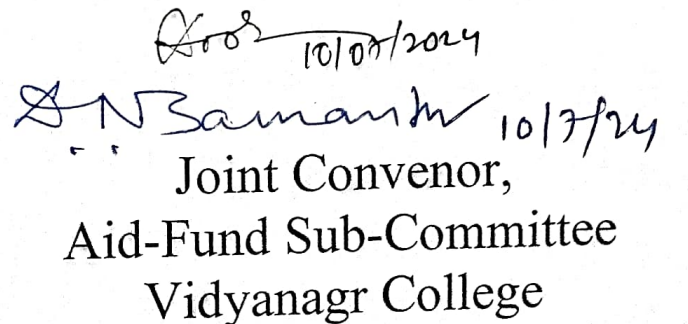 10/07/2024
10/7/24
Joint Convenor,
Aid-Fund Sub-Committee
Vidyanagr College